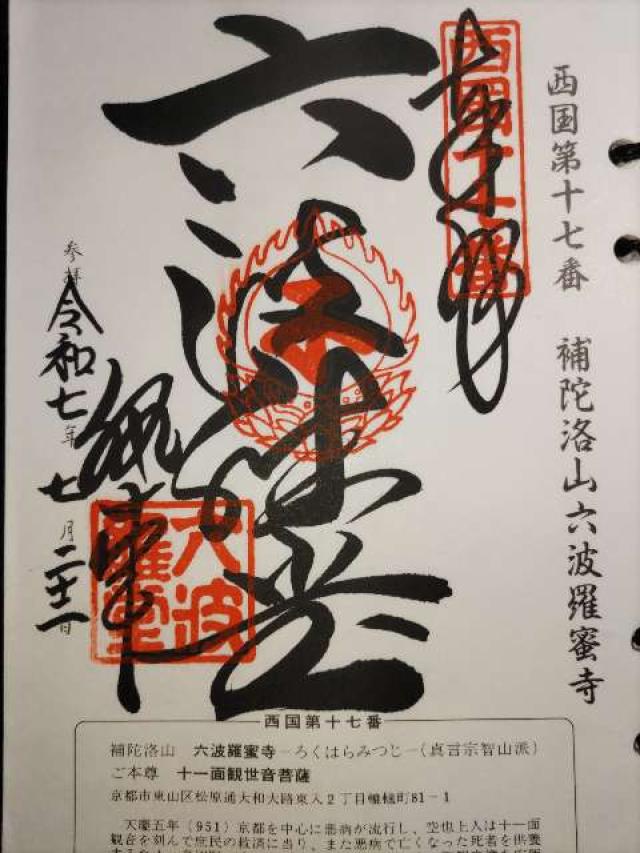 西国第十七番 補陀洛山六波羅蜜寺
奉拝
西國十七番
六波
参拝 令和七年七月二十二日
六波羅堂
西国第十七番
補陀洛山 六波羅蜜寺－ろくはらみつじ－(真言宗智山派)
ご本尊 十一面観世音菩薩
京都市東山区松原通大和大路東入2丁目轆轤町81－1
天暦五年(951)京都を中心に悪病が流行し、空也上人は十一面
観音を刻んで庶民の救済に当り、また悪病で亡くなった死者を供養